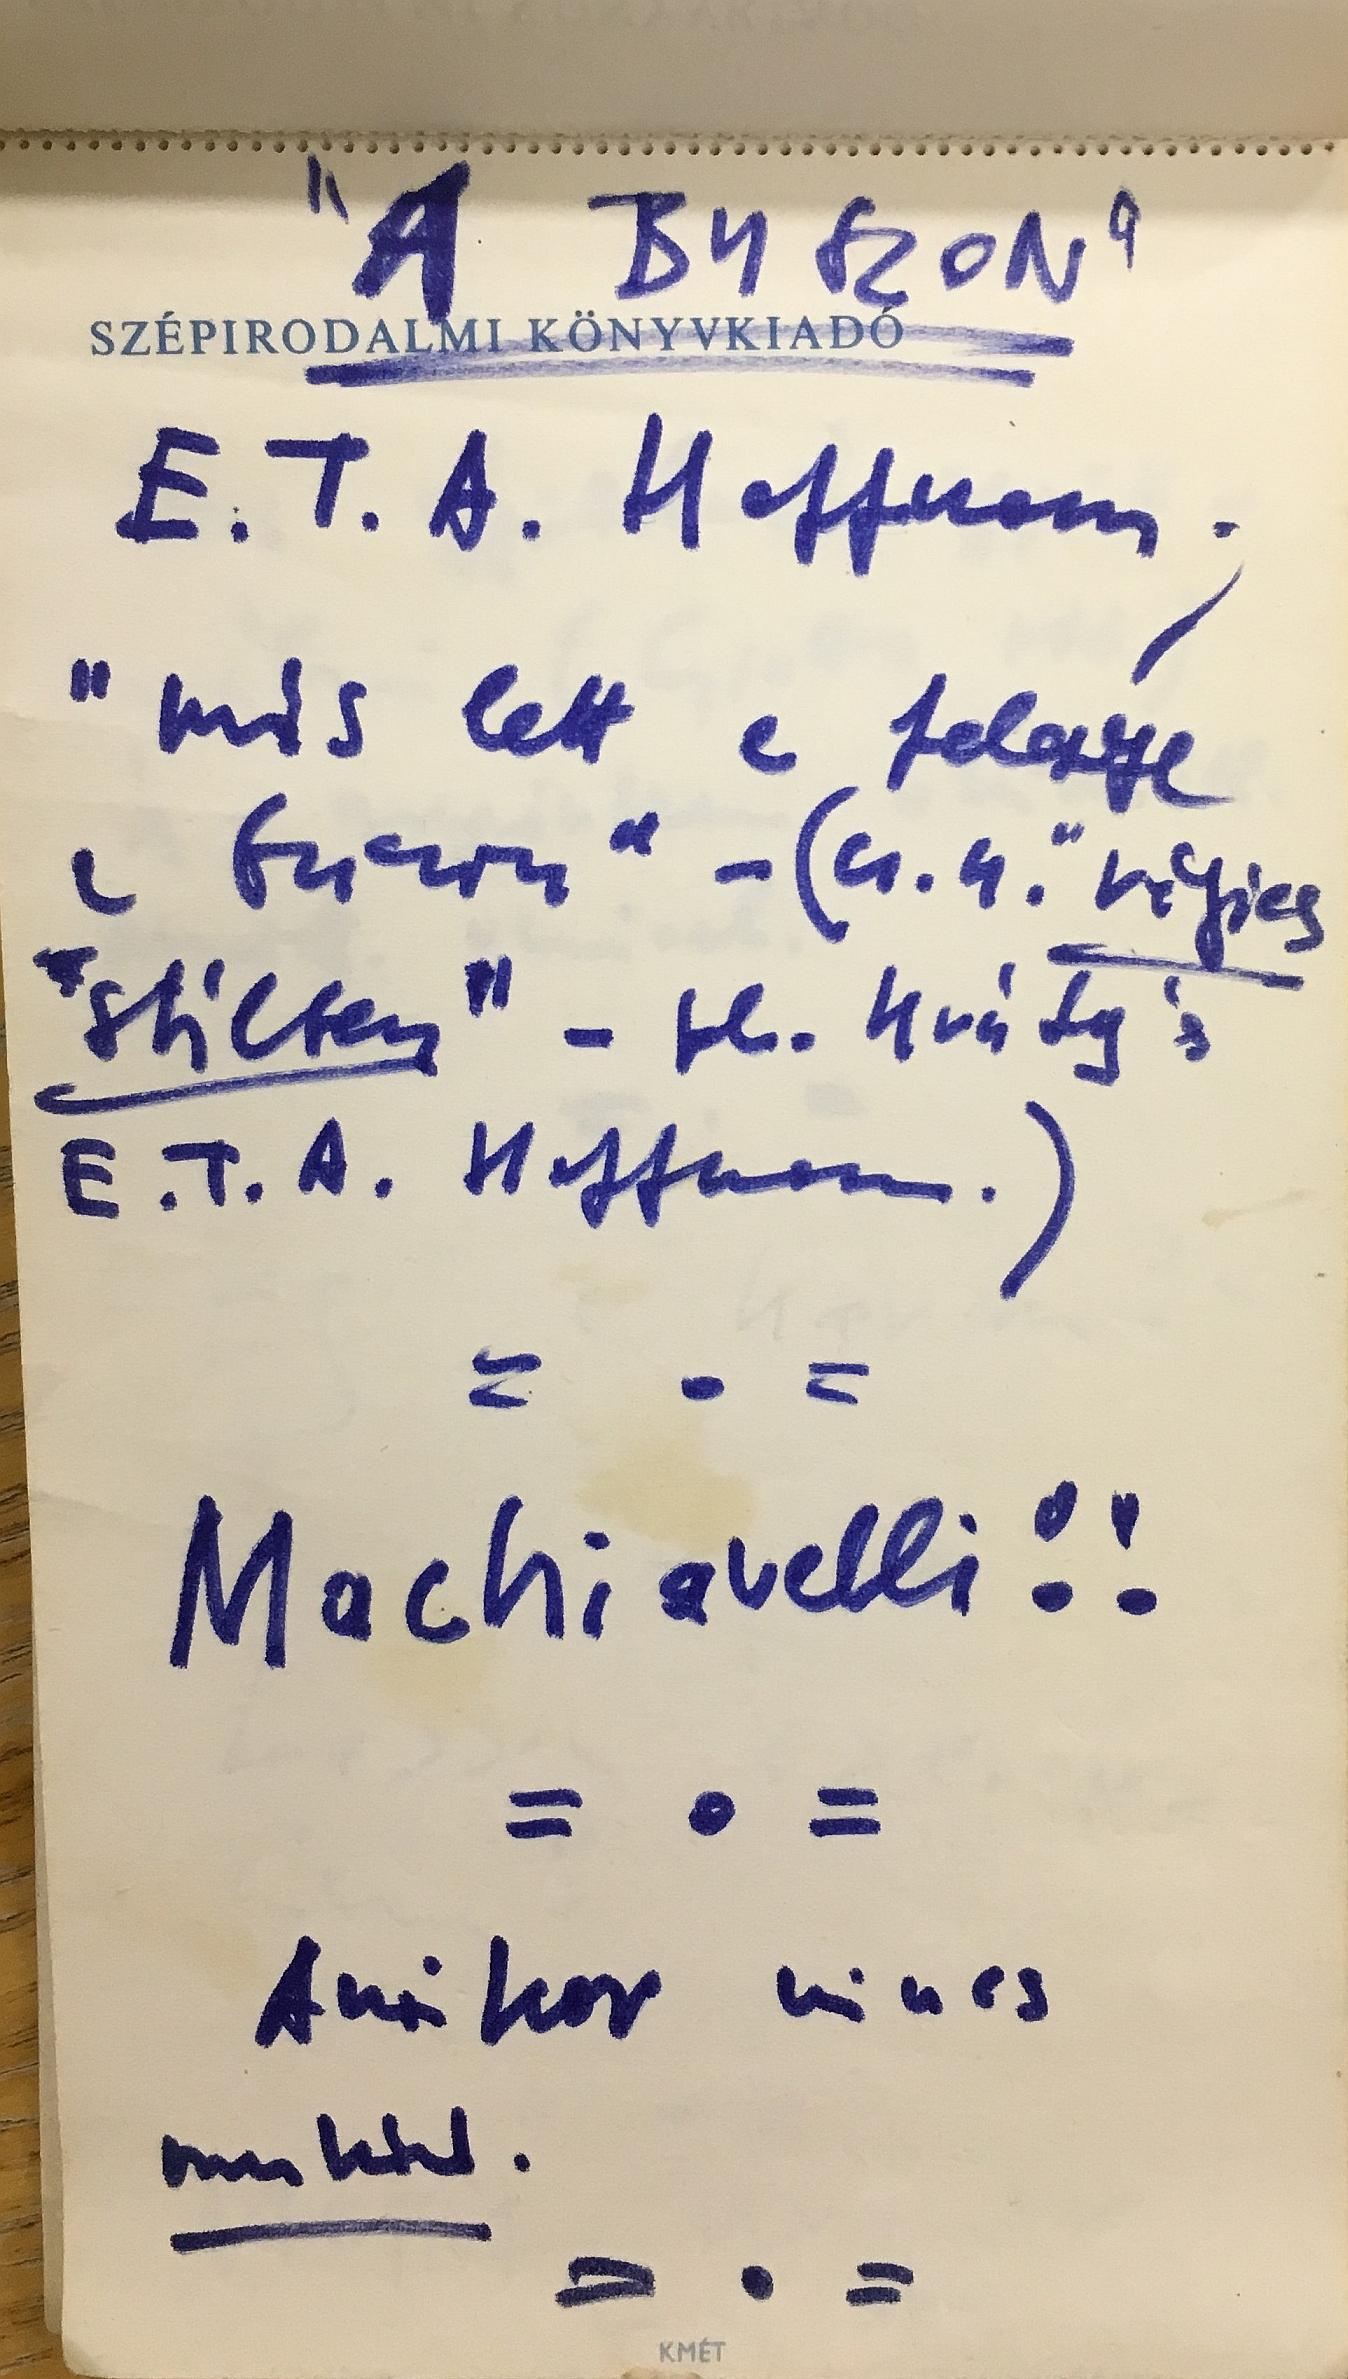 "A BUSZON"
SZÉPIRODALMI KÖNYVKIADÓ
E. T. A. Hoffmann;
"más lett a feleségе
a buszon" – (u. n. "régies
"stílben" – pl. Krúdy is
E. T. A. Hoffmann.)
= . =
Machiavelli!!
= • =
Amikor nincs
munkád.
= • =
KMÉT